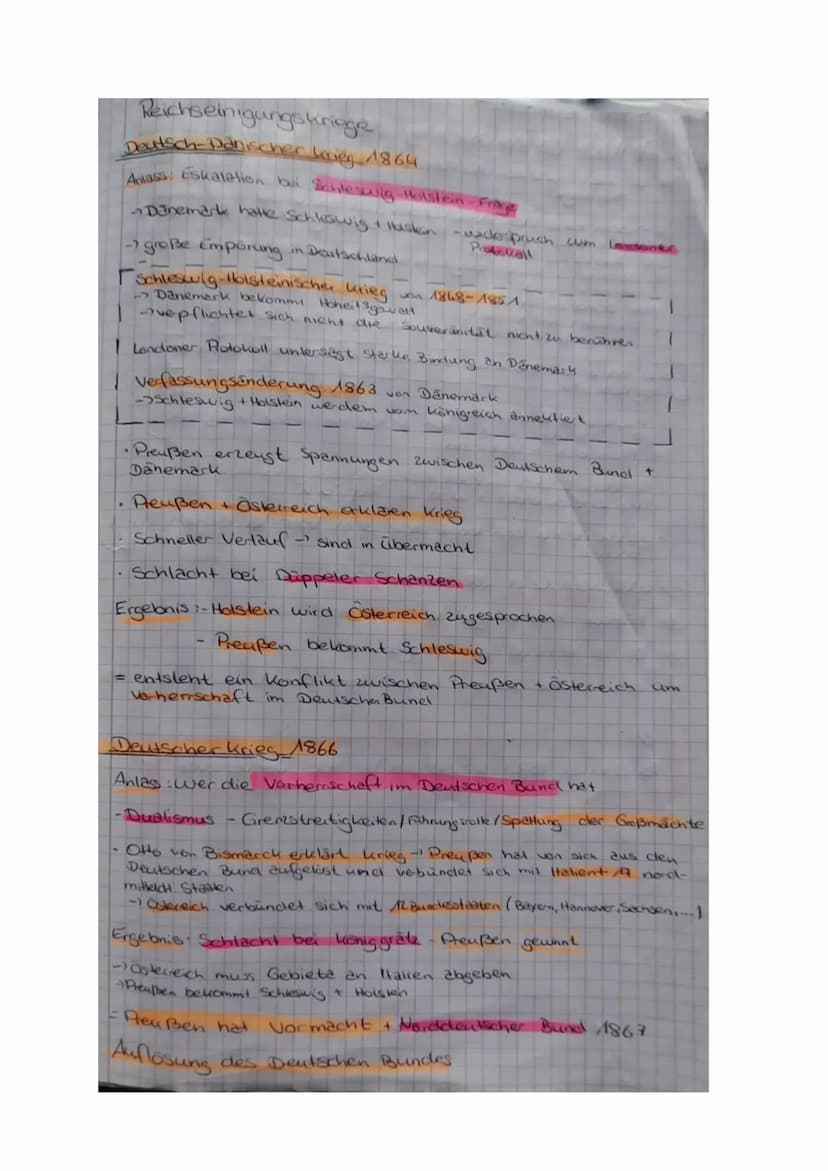 Reichseinigungskriege
Deutsch-Dänischer Krieg 1864
Anlass: Eskalation bei Schleswig-Holstein-Frage
→ Dänemark hatte Schleswig + Holstein - widerspruch zum Londoner
Protokoll
→ große Empörung in Deutschland
Schleswig-Holsteinischer Krieg von 1848-1851
→ Dänemark bekommt Hoheitsgewalt
→ verpflichtet sich nicht die Souveränität nicht zu berühren
Londoner Protokoll untersagt starke Bindung an Dänemark
Verfassungsänderung 1863 von Dänemark
→ Schleswig + Holstein werden vom Königreich annektiert
· Preußen erzeugt Spannungen zwischen Deutschem Bund +
Dänemark
· Preußen + Österreich erklären Krieg
· Schneller Verlauf → sind in Übermacht
· Schlacht bei Düppeler Schanzen
Ergebnis: - Holstein wird Österreich zugesprochen
- Preußen bekommt Schleswig
= entsteht ein Konflikt zwischen Preußen + Österreich um
Vorherrschaft im Deutschen Bund
Deutscher Krieg 1866
Anlass: wer die Vorherrschaft im Deutschen Bund hat
- Dualismus - Grenzstreitigkeiten / Führungsrolle / Spaltung der Großmächte
· Otto von Bismarck erklärt Krieg → Preußen hat von sich aus den
Deutschen Bund aufgelöst und verbündet sich mit Italien + 17 nord-
mitteldt. Staaten
→ Östereich verbündet sich mit 12 Bundesstaaten (Bayern, Hannover, Sachsen, ...)
Ergebnis: Schlacht bei Königgrätz - Preußen gewinnt
→ Österreich muss Gebiete an Italien abgeben
→ Preußen bekommt Schleswig + Holstein
= Preußen hat Vormacht + Norddeutscher Bund 1867
Auflösung des Deutschen Bundes